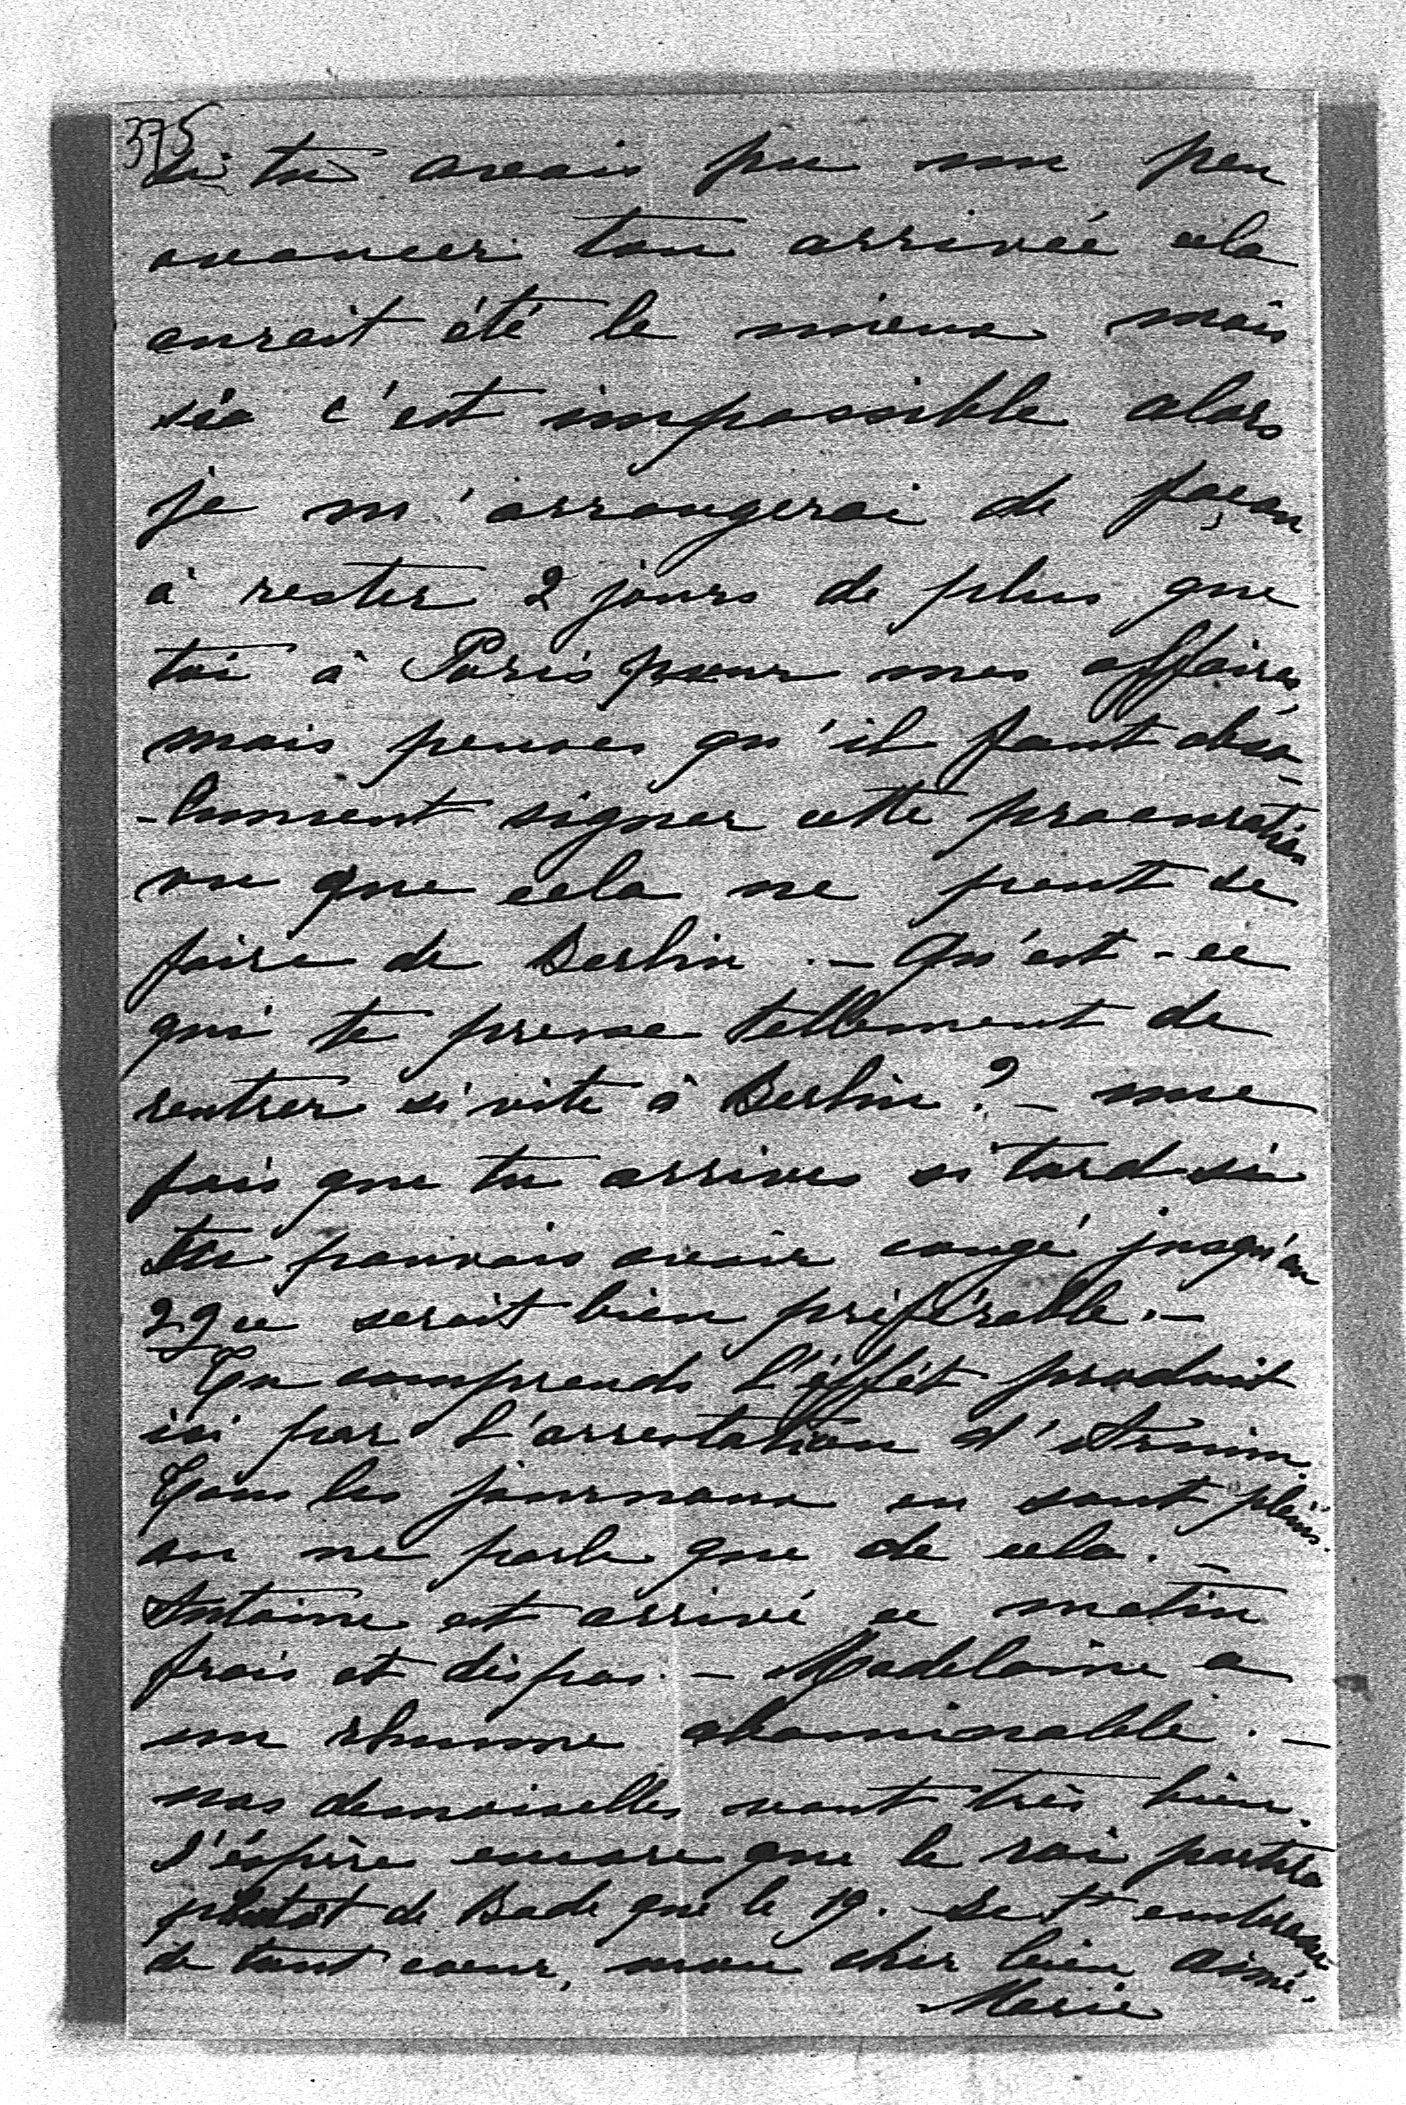 375
si tu avais pu un peu
avancer ton arrivée cela
aurait été le mieux mais
si c'est impossible alors
je m'arrangerai de façon
à rester 2 jours de plus que
toi à Paris pour mes affaires
mais penses qu'il faut abso-
-lument signer cette procuration
vu que cela ne peut se
faire de Berlin. – Qu'est-ce
qui te presse tellement de
rentrer si vite à Berlin? – une
fois que tu arrives si tard si
tu pouvais avoir congé jusqu'au
22 ce serait bien préférable. –
Tu comprends l'éffét produit
ici par l'arrestation d'Arnim.
Tous les journaux en sont pleins.
on ne parle que de cela. –
Antoine est arrivé ce matin
frais et dispos. – Madelaine a
un rhume abominable. –
nos demoiselles vont très bien.
J'éspère encore que le roi partira
plutôt de Bade que le 19. Je t'embrasse
de tout coeur, mon cher bien aimé.
Marie